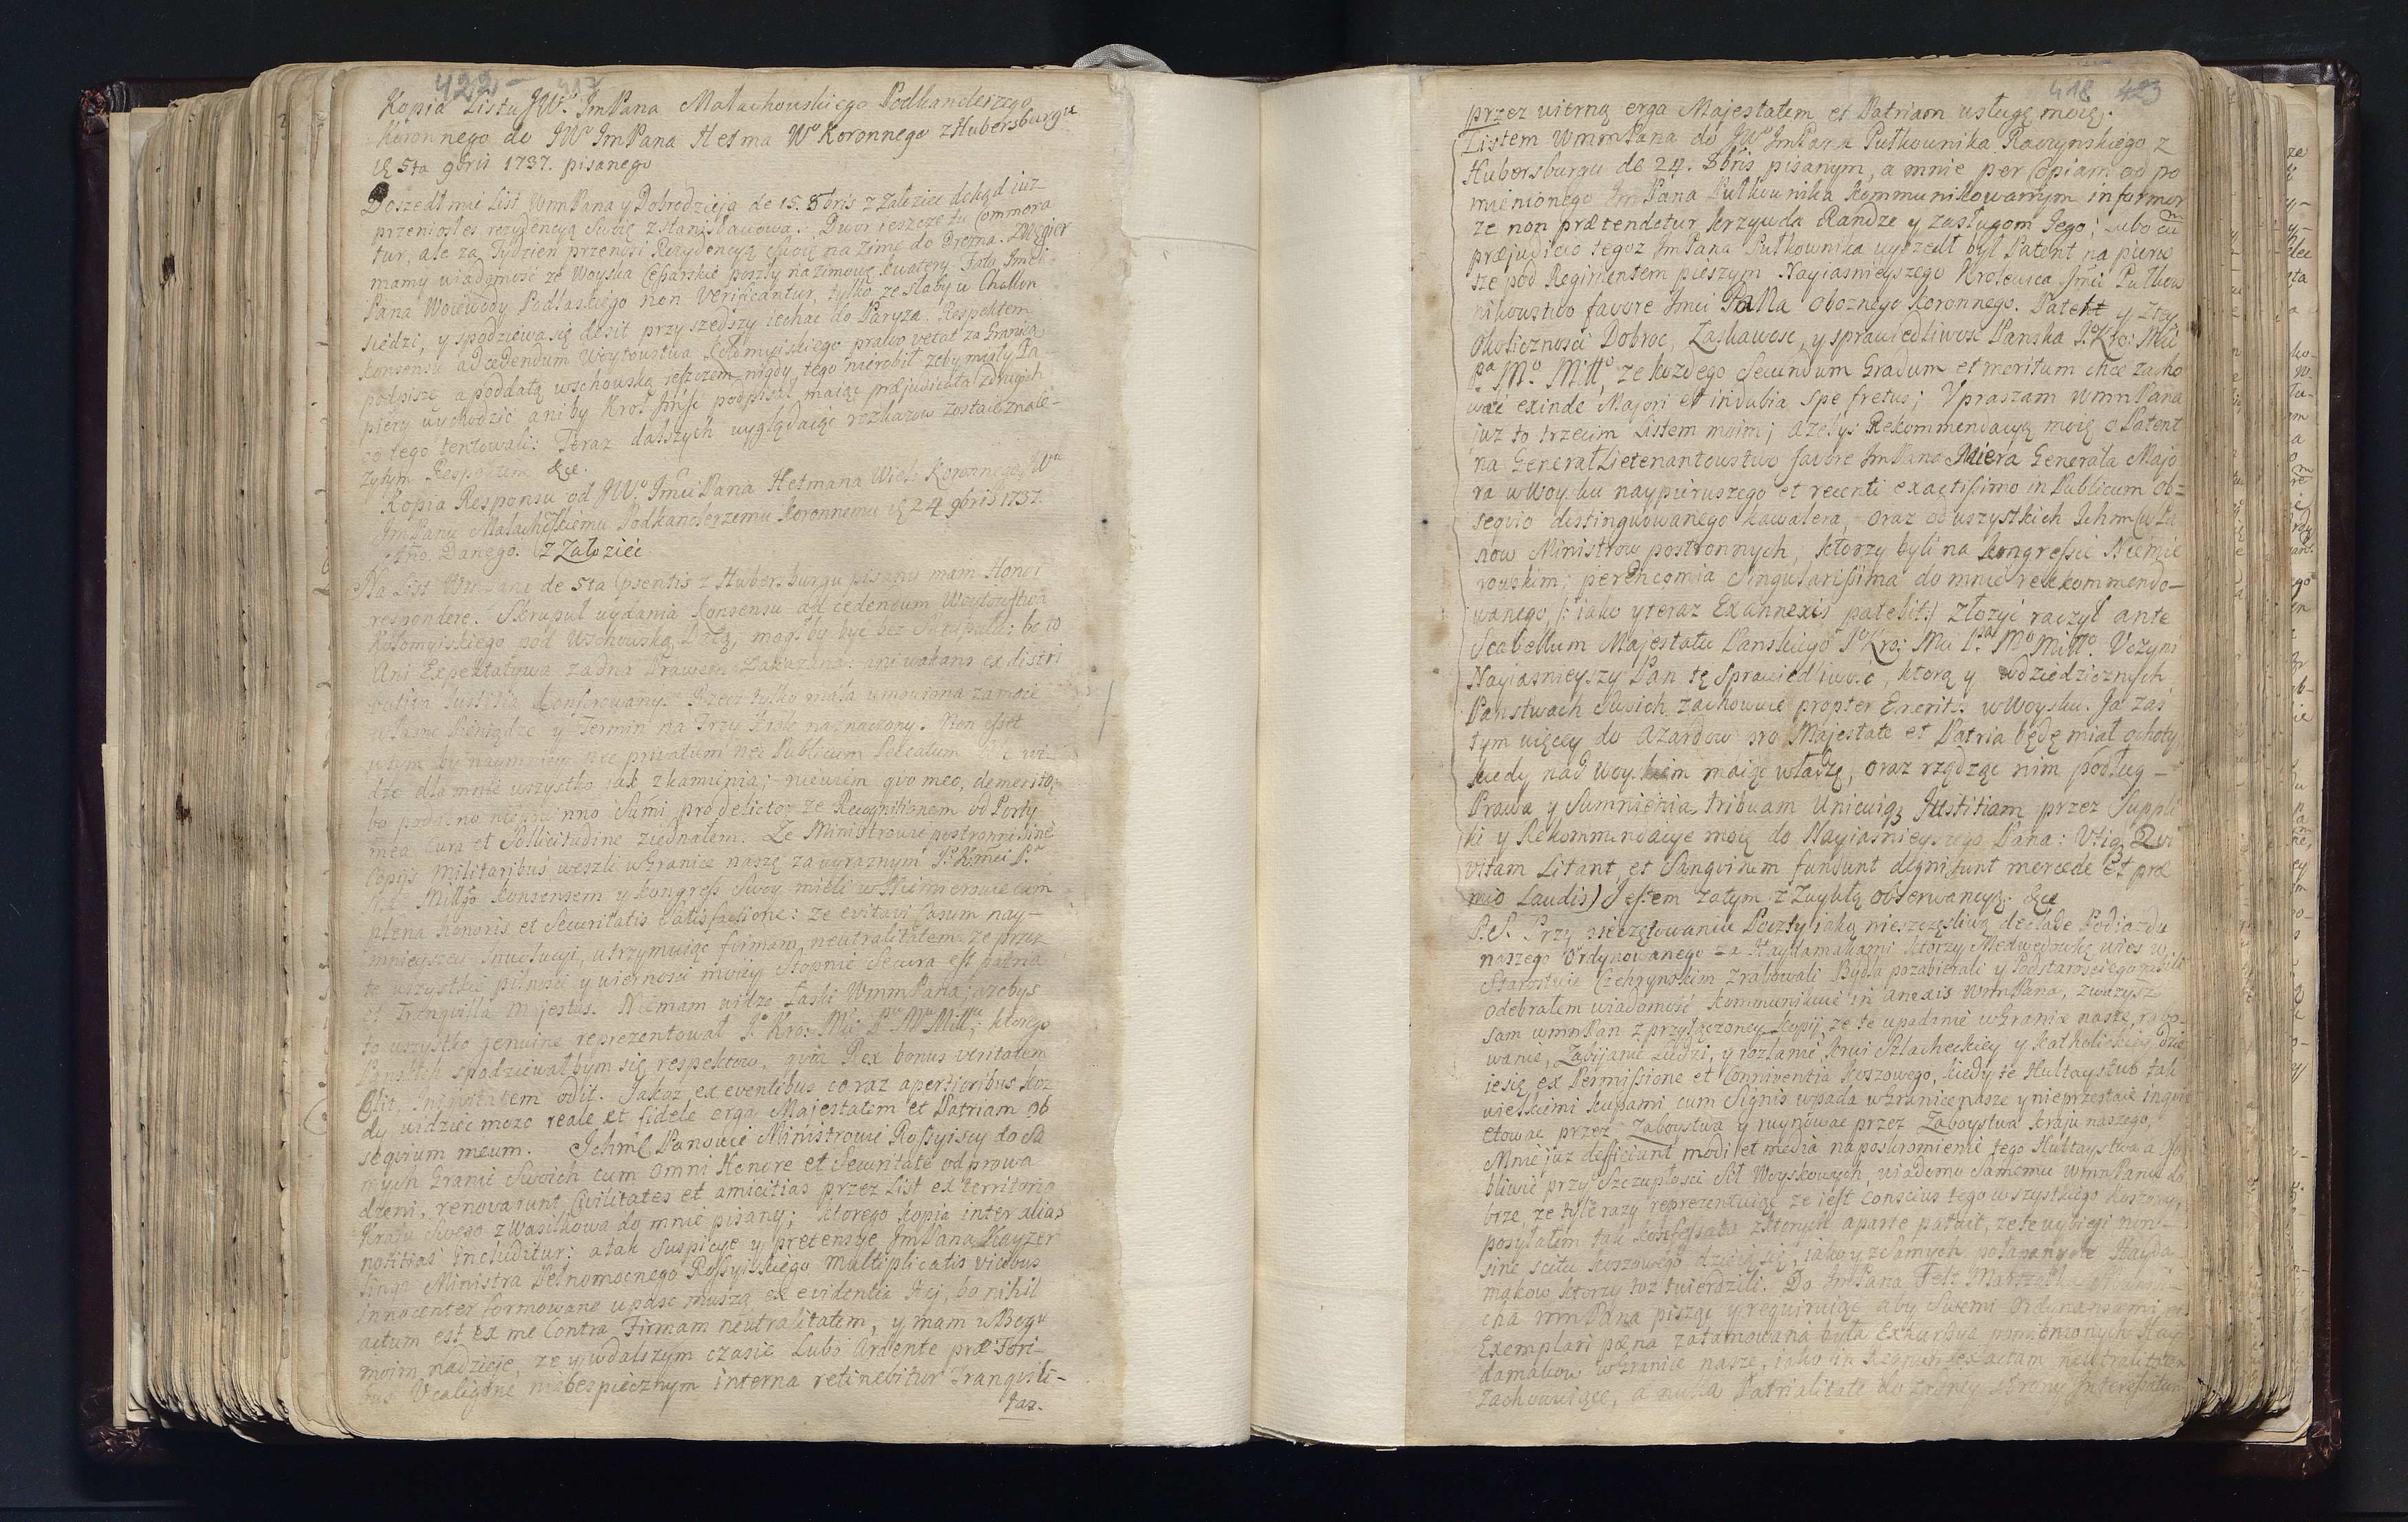 422 417
Kopia Listu JWo ImPana Małachowskiego Podkanclerzego
Koronnego do JWo ImPana Hetma Wo Koronnego z Hubersburgu
5ta 9bris 1737. pisanego
Doszedł mie List WmPana y Dobrodzieja de 15. 8bris z Załoziec dokąd iuż
przeniosłes rezydencyą Swoię z Stanisławowa. Dwor ieszcze tu Commora
tur, ale za Tydzien przenosi Rezydencyą Swoię na Zimę do Drezna. Z Węgier
mamy wiadomość ze Woyska Cesarskie poszły na zimowe kwatery. Fata Jmci
Pana Woiewody Podlaskiego non Verificantur, tylko ze słaby w Challon
siedzi, y spodziewa się desit przyszedszy iechać do Paryza. Respektem
konsensu ad cedendum Woytowstwa Kołomyiskiego prawo vetat za Granicą
podpisze a poddatą wschowską ieszczem nigdy tego nierobił zeby miały Pa
piery wychodzić ani by Krol Jmsc podpisał maiąc præjudicata z drugich
co tego tentowali: Teraz dalszych wyglądaiąc rozkazow zostaię z nale-
zytym Respektem &ce.
Kopia Responsu od JWo Jmci Pana Hetmana Wiel: Koronnego JWu
ImPanu Małachowskiemu Podkanclerzemu Koronnemu 24 9bris 1737.
Danego. z Załoziec
Na List WmPana de 5ta psentis z Hubersburgu pisany mam Honor
respondere. Skrupuł wydania konsensu ad cedendum Woytowstwa
Kołomyiskiego pod Wschowską Datą, mogłby być bez Skrupułu; bo to
Ani Expektatywa zadna Prawem zakazana: ani wakans ex distri
butiva Justitia Conferowany. Rzecz tylko mała umowiona za moie
własne Pieniądze y Termin na Trzy Krole naznaczony. Non esset
w tym by naymniey nec privatum nec Publicum Peccatum Ale wi-
dzę dla mnie wszystko iak z kamienia; niewiem quo meo, demerito,
bo podobno niepowinno Sumi pro delicto, ze Recognitionem od Porty
mea Cura et Sollicitudine ziednałem. Ze Ministrowie postronni sine
Copijs militaribus weszli w Granice naszę za wyraznym Jo K: mci Pa
Mo Miłłgo konsensem y kongress Swoy mieli w Niemierowie cum
plena honoris et Securitatis Satisfactione: ze evitavi Casum nay-
mnieyszey Jnvolucyi, utrzymuiąc firmam neutralitatem ze przez
te wszystkie pilnosci y wiernosci moiey Stopnie Secura est patria
et Tranquilla Majestas. Niemam widzę Łaski WmmPana; azebys
to wszystko genuine reprezentował Jo Kro: Mci Pu Mu Miłłu; ktorego
Panskich spodziewałbym się respektow, quia Rex bonus veritatem
Elit, Jniquitatem odit. Jakoz ex eventibus coraz apertioribus kaz
dy widzieć może reale et fidele erga Majestatem et Patriam ob
sequium meum. Jchmć Panowie Ministrowie Rossyiscy do Sa
mych Granic Swoich cum omni Honore et Securitate odprowa
dzeni, renovarunt Civilitates et amicitias przez List ex territorio
Kraiu Swego z Wasilkowa do mnie pisany; ktorego kopia inter alias
notitias includitur; a tak Suspicye y pretensye JmPana Kayzer
linga Ministra Pełnomocnego Rossyiskiego multiplicatis vicibus
innocenter formowane upasc muszą ex evidentia rei, bo nihil
actum est ex me Contra Firmam neutralitatem, y mam w Bogu
moim nadzieję, ze y w dalszym czasie Lubo Ardente præ Fori-
bus Ucaligone niebespiecznym interna retinebitur Tranquili-
tas.
418 423
przez wierną erga Majestatem et Patriam usługę moię.
Listem WmmPana do JWo JmPana Pułkownika Raczynskiego z
Hubersburgu de 24. 8bris pisanym, a mnie per Copiam od po
mienionego JmPana Pułkownika kommunikowanym informor
ze non prætendetur krzywda Randze y zasługom Jego; Lubo cu
præjudicio tegoz JmPana Pułkownika wyszedł był Patent na pierw
sze pod Regimentem pieszym Nayiasnieyszego Krolewica Jmci Pułkow
nikowstwo favore Jmci Pana Oboznego Koronnego. Patent y z tey
Okolicznosci Dobroc, Łaskawosc, y sprawiedliwosc Panska Jo Kro: Mci
Pa Mo Miłło, ze kozdego Secundum Gradum et meritum chce zacho
wać exinde Majori et indubia spe fretus; Upraszam WmmPana
iuz to trzecim Listem moim; azebys Rekommendacyą moię o Patent
na GenerałLietenantowstwo favore JmPana Miera Generała Majo
ra w Woysku naypierwszego et recenti exactissimo in Publicum ob=
sequio distingwowanego kawalera, oraz od wszystkich Jchmciow Pa
now Ministrow postronnych, ktorzy byli na kongressie Niemie
rowskim; per Encomia Singularissima do mnie rekkommendo-
wanego, /: iako y teraz Exannexis patebit:/ złozyć raczył ante
Scabellum Majestatu Panskiego Jo Kro: Mci Pa Mo Miłło. Uczyni
Nayiasnieyszy Pan tę Sprawiedliwość, ktorą y w dziedzicznych
Panstwach Swoich zachowuie propter Emeritos w Woysku. Ja zas
tym więcey do azardow pro Majestate et Patria będę miał ochoty
kiedy nad Woyskiem maiąc władzę, oraz rządząc nim podług -
Prawa y Sumnienia, tribuam Unicuiq Justitiam przez Suppli
ki y Rekommendacye moię do Nayiasnieyszego Pana: Utiq Qvi
vitam Litant, et Sanguinem fundunt digni sunt mercede Et præ
mio Laudis) Jestem zatym z Zwykłą obserwancyą. &ce
P.S. Przy pieczętowaniu Poczty iaką nieszczęsliwą de clade Podiazdu
naszego ordynowanego za Haydamakami ktorzy Medwedowkę wies w
Starostwie Czehrynskim zrabowali Bydła pozabierali y Podstarosciego zabili
odebrałem wiadomość kommunikuie in anexis WmnPana, zwazysz
sam WmnPan z przyłączoney kopij, ze te upadanie w Granice nasze, rabo-
wanie, Zabijanie Ludzi, y rozlanie krwi Szlacheckiey y katholickiey, dzie
ie się ex Permissione et Conniventia Koszowego, kiedy te Hultaystwo tak
wielkiemi kupami cum Signis wpada w Granice nasze y nieprzestaie inqvi
etowac przez Zaboystwa y ruynowac przez Zaboystwa kraju naszego,
Mnie iuz deficiunt modi et media na poskromienie tego Hultaystwa a oso
bliwie przy Szczupłosci Sił Woyskowych, wiadomo Samemu WmnPanu do
brze, ze tyle razy reprezentuiąc ze iest Conscius tego wszystkiego Koszowy,
posyłałem tak konfessata z ktorych aparte patuit, ze te wybiegi non-
sine scitu koszowego dzieią się, iako y z samych połapanych Hayda
makow ktorzy toz twierdzili. Do JmPana Felt Marszałka Minni-
cha WmPana piszę y requiruię aby Swemi Ordynansami et
Exemplari pœna zatamowana była Exkursya pomienionych Hay
damakow w Granice nasze, iako in Regnum exactam neutralitatem
Zachowuiące, a nulla Patrialitate do zadney strony Interessatum